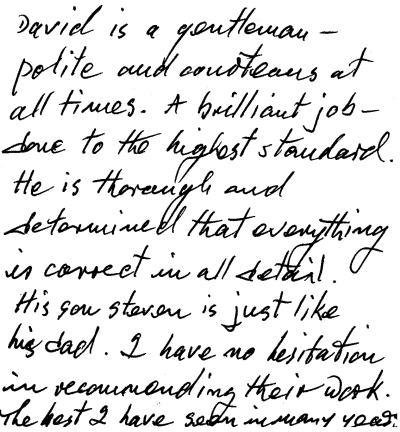 David is a gentleman –
polite and courteous at
all times. A brilliant job –
done to the highest standard.
He is thorough and
determined that everything
is correct in all detail.
His son steven is just like
his dad. I have no hesitation
in recommending their work.
The best I have seen in many years